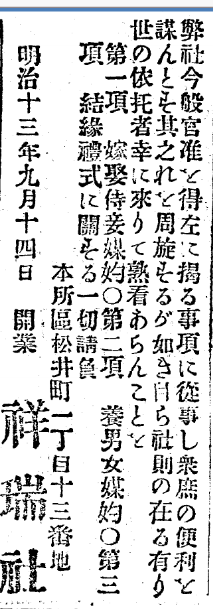 弊社今般官准を得左に掲る事項に從事し衆庶の便利を
謀んとも其之れを周旋もるが如き自ら社則の在る有り
世の依托者幸に來りて熟看あらんことを
第一項 嫁娶侍妾媒妁〇第二項 養男女媒妁〇第三
項 結緣禮式に關もる一切請負
本所區松井町二丁目十三番地
明治十三年九月十四日 開業 祥瑞社